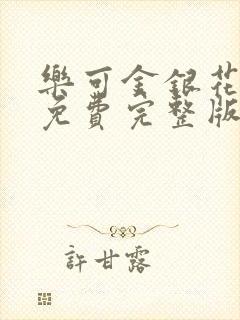 樂可金銀花
免費完整版
許甘露